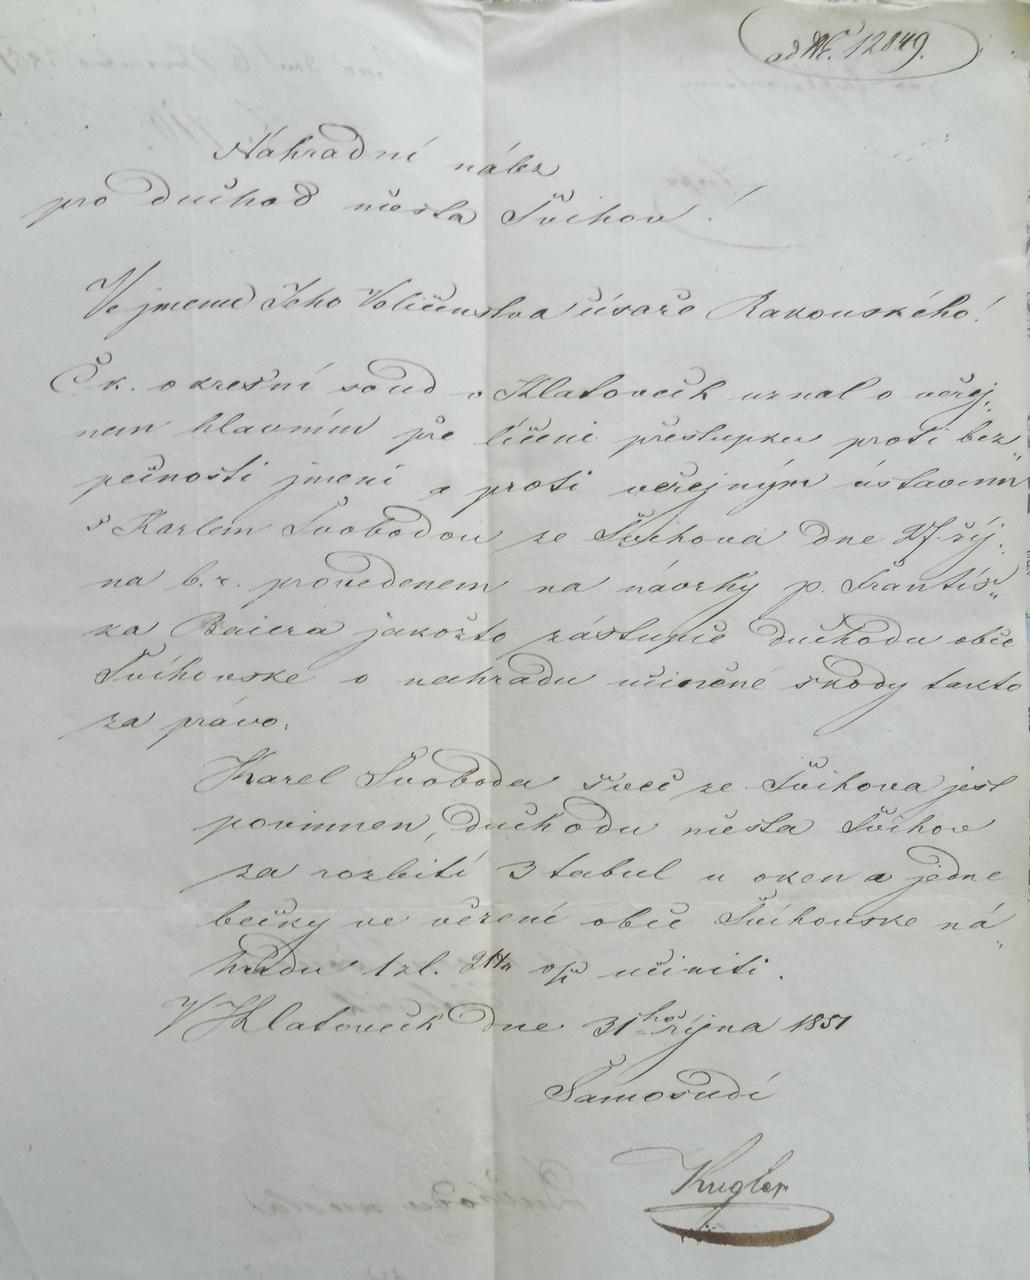 ad Nč. 12849.
Náhradní nález
pro důchod města Švihov!
Ve jmenu Jeho Veličenstva císaře Rakouského!
C. k. okresní soud v Klatovech uznal o veřej„
nem hlavním pře líčení přestupku proti bez„
pečnosti jmení a proti veřejným ústavům
s Karlem Svobodou ze Švihova dne 27. říj„
na b. r. provedenem na návrhy p. Františ„
ka Baiera jakožto zástupce důchodu obce
Švihovské o nahradu učiněné škody takto
za právo.
Karel Svoboda švec ze Švihova jest
povinnen, důchodu města Švihov
za rozbití 3 tabul u oken a jedne
bečky ve vězení obce Švihovske ná„
hradu 1 zl. učiniti.
V Klatovech dne 31ho října 1851
Samosudí
Kugler